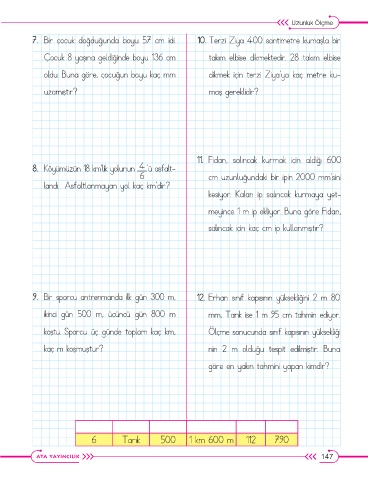 Uzunluk Ölçme
7. Bir çocuk doğduğunda boyu 57 cm idi.
Çocuk 8 yaşına geldiğinde boyu 136 cm
oldu. Buna göre, çocuğun boyu kaç mm
uzamıştır?
8. Köyümüzün 18 km'lik yolunun 4/6 'ü asfalt-
landı. Asfaltlanmayan yol kaç km'dir?
9. Bir sporcu antrenmanda ilk gün 300 m,
ikinci gün 500 m, üçüncü gün 800 m
koştu. Sporcu üç günde toplam kaç km,
kaç m koşmuştur?
10. Terzi Ziya 400 santimetre kumaşla bir
takım elbise dikmektedir. 28 takım elbise
dikmek için terzi Ziya'ya kaç metre ku-
maş gereklidir?
11. Fidan, salıncak kurmak için aldığı 600
cm uzunluğundaki bir ipin 2000 mm'sini
kesiyor. Kalan ip salıncak kurmaya yet-
meyince 1 m ip ekliyor. Buna göre Fidan,
salıncak için kaç cm ip kullanmıştır?
12. Erhan sınıf kapısının yüksekliğini 2 m 80
mm, Tarık ise 1 m 95 cm tahmin ediyor.
Ölçme sonucunda sınıf kapısının yüksekliği
nin 2 m olduğu tespit edilmiştir. Buna
göre en yakın tahmini yapan kimdir?
6 Tarık 500 1 km 600 m 112 790
ATA YAYINCILIK
147